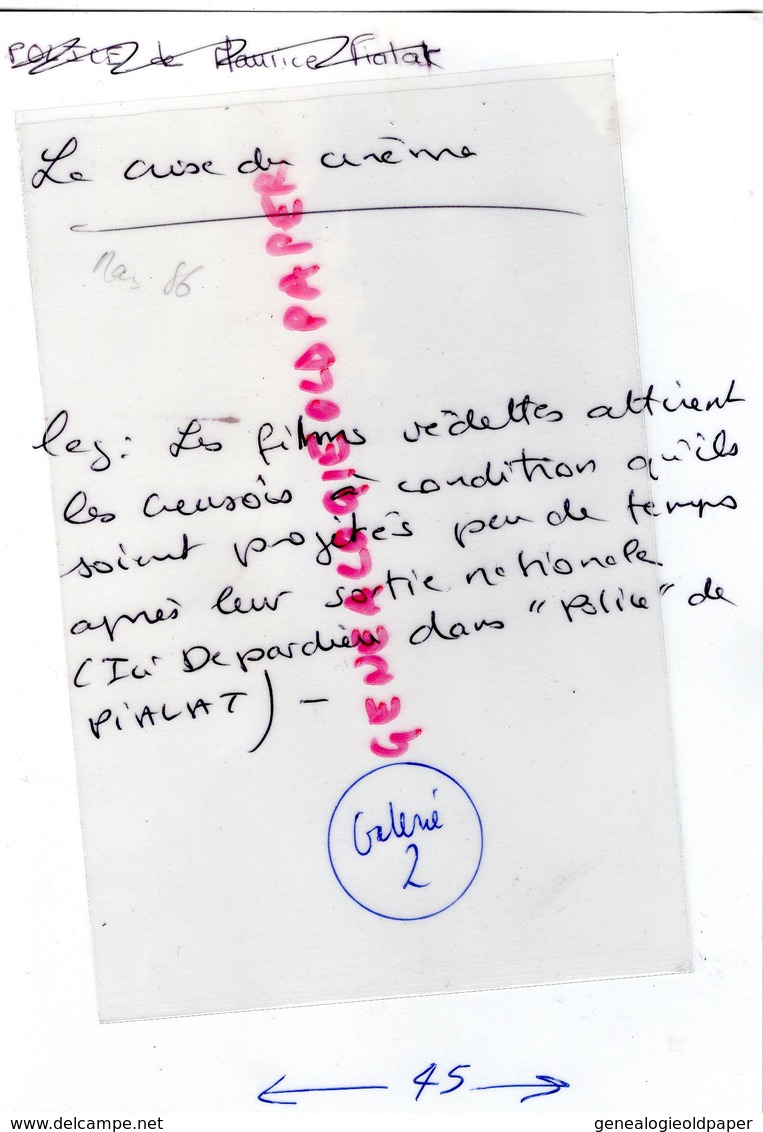 POLICE de Maurice Pialat
La crise du cinéma
Mars 86
leg : Les films vedettes attirent
les creusois à condition qu'ils
soient projetés peu de temps
après leur sortie nationale
(Ici Depardieu dans "Police" de
PIALAT) -
GENEALOGIEOLDPAPER
Galerie
2
45
genealogieoldpaper